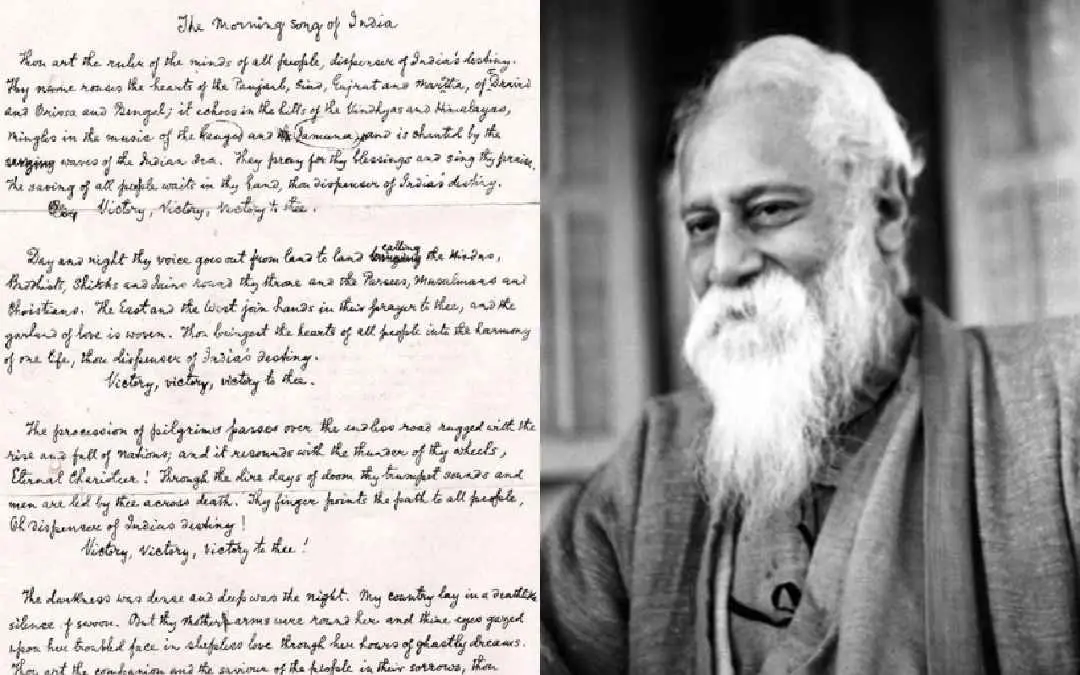 The Morning song of India
Thou art the ruler of the minds of all people, dispenser of India's destiny.
Thy name rouses the hearts of the Punjaub, Sind, Gujrat and Maratha, of Dravid
and Orissa and Bengal; it echoes in the hills of the Vindhyas and Himalayas,
mingles in the music of the and Jamuna and is chanted by the
waves of the Indian Sea. They pray for thy blessings and sing thy praise.
The saving of all people waits in thy hand, thou dispenser of India's destiny.
Victory, Victory, Victory to thee.
Day and night thy voice goes out from land to land calling the Hindus,
Buddhists, Shikhs and Jains round thy throne and the Parsees, Musalmans and
Christians. The East and the West join hands in their prayer to thee, and the
garland of love is woven. Thou bringest the hearts of all people into the harmony
of one life, thou dispenser of India's destiny.
Victory, victory, victory to thee.
The procession of pilgrims passes over the endless road rugged with the
rise and fall of Nations; and it resounds with the thunder of thy wheels,
Eternal Charioteer! Through the dire days of doom thy trumpet sounds and
men are led by thee across death. Thy finger points the path to all people,
Oh dispenser of India's destiny!
Victory, Victory, Victory to thee!
The darkness was dense and deep was the night. My country lay in a deathlike
silence of swoon. But thy mother arms were round her and thine eyes gazed
upon her troubled face in sleepless love through her hours of ghastly dreams.
Thou art the companion and the saviour of the people in their sorrows, thou